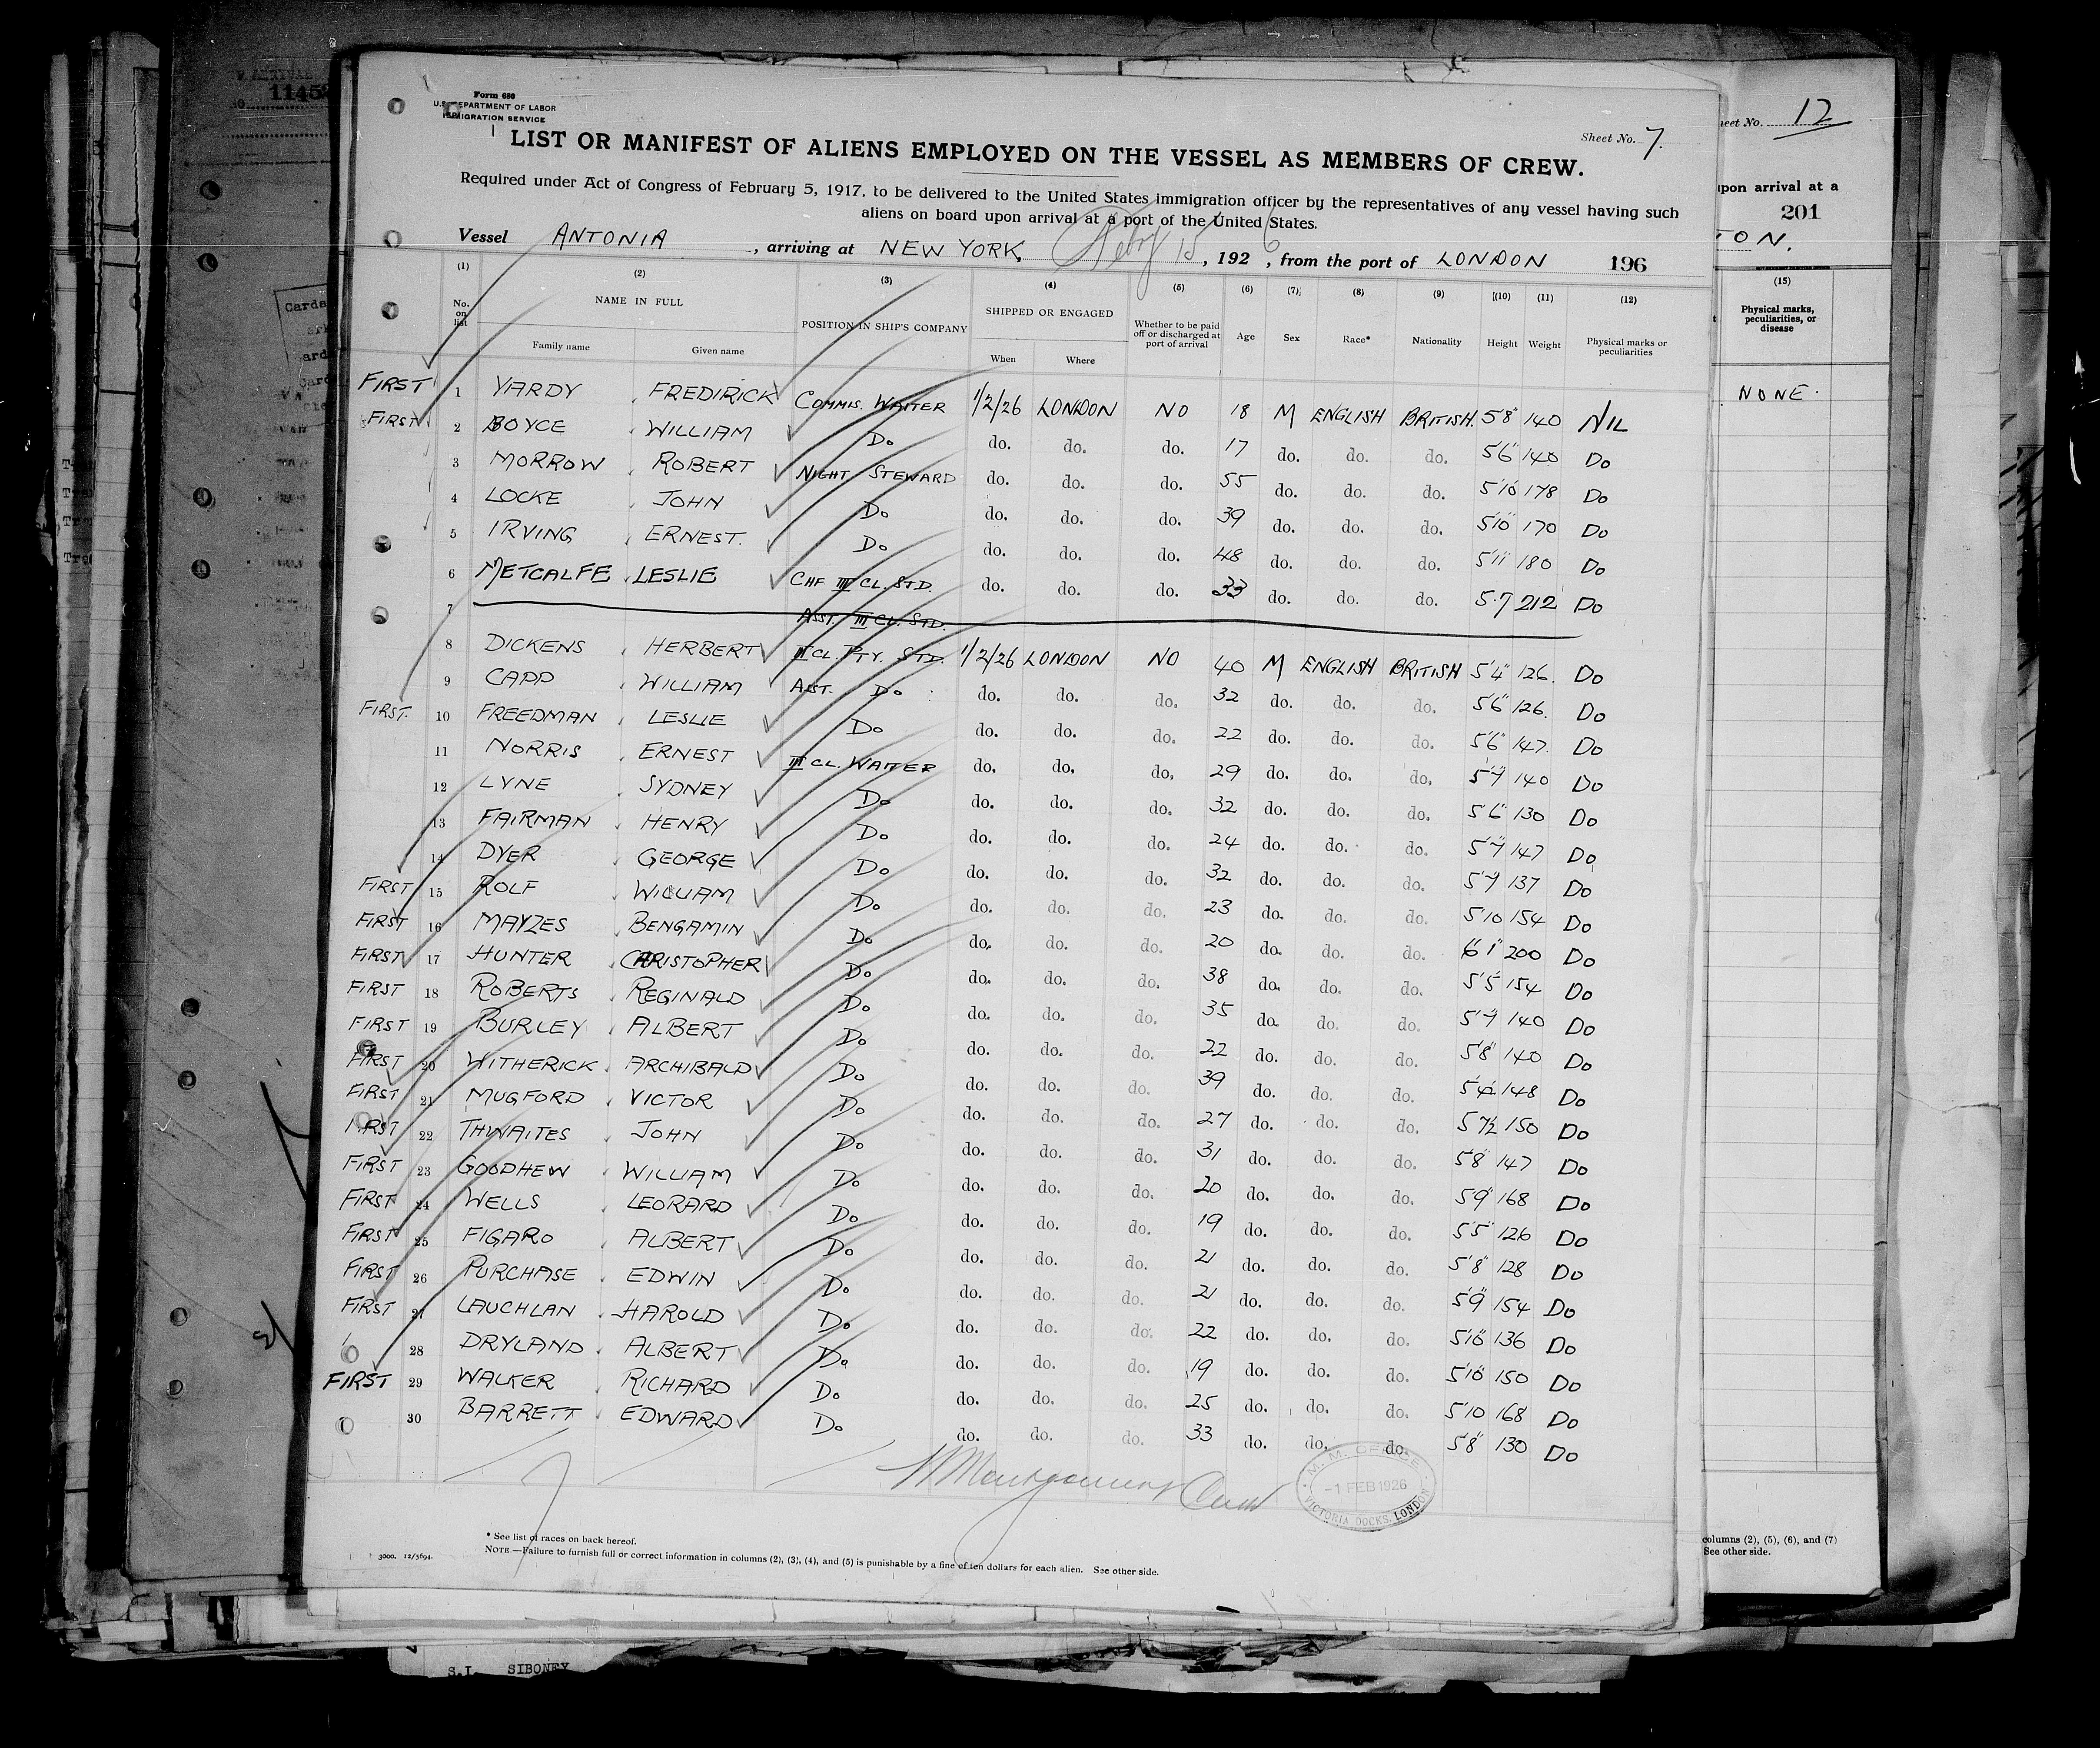 Form 680
U.S. DEPARTMENT OF LABOR
IMMIGRATION SERVICE
Sheet No. 7.
LIST OR MANIFEST OF ALIENS EMPLOYED ON THE VESSEL AS MEMBERS OF CREW.
Required under Act of Congress of February 5, 1917, to be delivered to the United States immigration officer by the representatives of any vessel having such
aliens on board upon arrival at a port of the United States.
Vessel ANTONIA, arriving at NEW YORK, Feby 15, 1926, from the port of LONDON 196
(1) (2) (3) (4) (5) (6) (7) (8) (9) (10) (11) (12)
No. on list NAME IN FULL Family name Given name POSITION IN SHIP'S COMPANY SHIPPED OR ENGAGED When Where Whether to be paid off or discharged at port of arrival Age Sex Race* Nationality Height Weight Physical marks or peculiarities
FIRST 1 YARDY FREDIRICK COMMIS. WAITER 1/2/26 LONDON NO 18 M ENGLISH BRITISH. 5'8" 140 NIL
FIRST 2 BOYCE WILLIAM Do do. do. do. 17 do. do. do. 5'6" 140 Do
3 MORROW ROBERT NIGHT STEWARD do. do. do. 55 do. do. do. 5'10 178 Do
4 LOCKE JOHN Do do. do. do. 39 do. do. do. 5'10" 170 Do
5 IRVING ERNEST. Do do. do. do. 48 do. do. do. 5'11 180 Do
6 METCALFE LESLIE CHF III CL. STD. do. do. do. 33 do. do. do. 5.7 212 Do
7 ASST. III CL. STD.
8 DICKENS HERBERT III CL. PTY. STD. 1/2/26 LONDON NO 40 M ENGLISH BRITISH 5'4" 126. Do
9 CAPP WILLIAM AST. Do do. do. do. 32 do. do. do. 5'6" 126. Do
FIRST. 10 FREEDMAN LESLIE Do do. do. do. 22 do. do. do. 5'6" 147. Do
11 NORRIS ERNEST III CL. WAITER do. do. do. 29 do. do. do. 5'7" 140 Do
12 LYNE SYDNEY Do do. do. do. 32 do. do. do. 5'6" 130 Do
13 FAIRMAN HENRY Do do. do. do. 24 do. do. do. 5'7" 147 Do
14 DYER GEORGE Do do. do. do. 32 do. do. do. 5'7 137 Do
FIRST 15 ROLF WILLIAM Do do. do. do. 23 do. do. do. 5'10 154 Do
FIRST 16 MAYZES BENGAMIN Do do. do. do. 20 do. do. do. 6'1" 200 Do
FIRST 17 HUNTER CHRISTOPHER Do do. do. do. 38 do. do. do. 5'5" 154 Do
FIRST 18 ROBERTS REGINALD Do do. do. do. 35 do. do. do. 5'7" 140 Do
FIRST 19 BURLEY ALBERT Do do. do. do. 22 do. do. do. 5'8" 140 Do
FIRST 20 WITHERICK ARCHIBALD Do do. do. do. 39 do. do. do. 5'4" 148 Do
FIRST 21 MUGFORD VICTOR Do do. do. do. 27 do. do. do. 5 7½ 150 Do
FIRST 22 THWAITES JOHN Do do. do. do. 31 do. do. do. 5'8" 147 Do
FIRST 23 GOODHEW WILLIAM Do do. do. do. 20 do. do. do. 5'9" 168 Do
FIRST 24 WELLS LEORARD Do do. do. do. 19 do. do. do. 5'5" 126 Do
FIRST 25 FIGARO ALBERT Do do. do. do. 21 do. do. do. 5'8" 128 Do
FIRST 26 PURCHASE EDWIN Do do. do. do. 21 do. do. do. 5'9" 154 Do
FIRST 27 LAUCHLAN HAROLD Do do. do. do. 22 do. do. do. 5'10" 136 Do
28 DRYLAND ALBERT Do do. do. do. 19 do. do. do. 5'10" 150 Do
FIRST 29 WALKER RICHARD Do do. do. do. 25 do. do. do. 5'10 168 Do
30 BARRETT EDWARD Do do. do. do. 33 do. do. do. 5'8" 130 Do
M. M. OFFICE
-1 FEB 1926
VICTORIA DOCKS, LONDON
* See list of races on back hereof.
NOTE.—Failure to furnish full or correct information in columns (2), (3), (4), and (5) is punishable by a fine of ten dollars for each alien. See other side.
3000. 12/5694.
eet No. 12
upon arrival at a
201
TON.
(15)
Physical marks, peculiarities, or disease
NONE.
columns (2), (5), (6), and (7)
See other side.
1145
S.I. SIBONEY